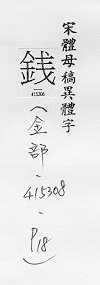 宋體母稿異體字
銭
415308
(金部-415308-P18)